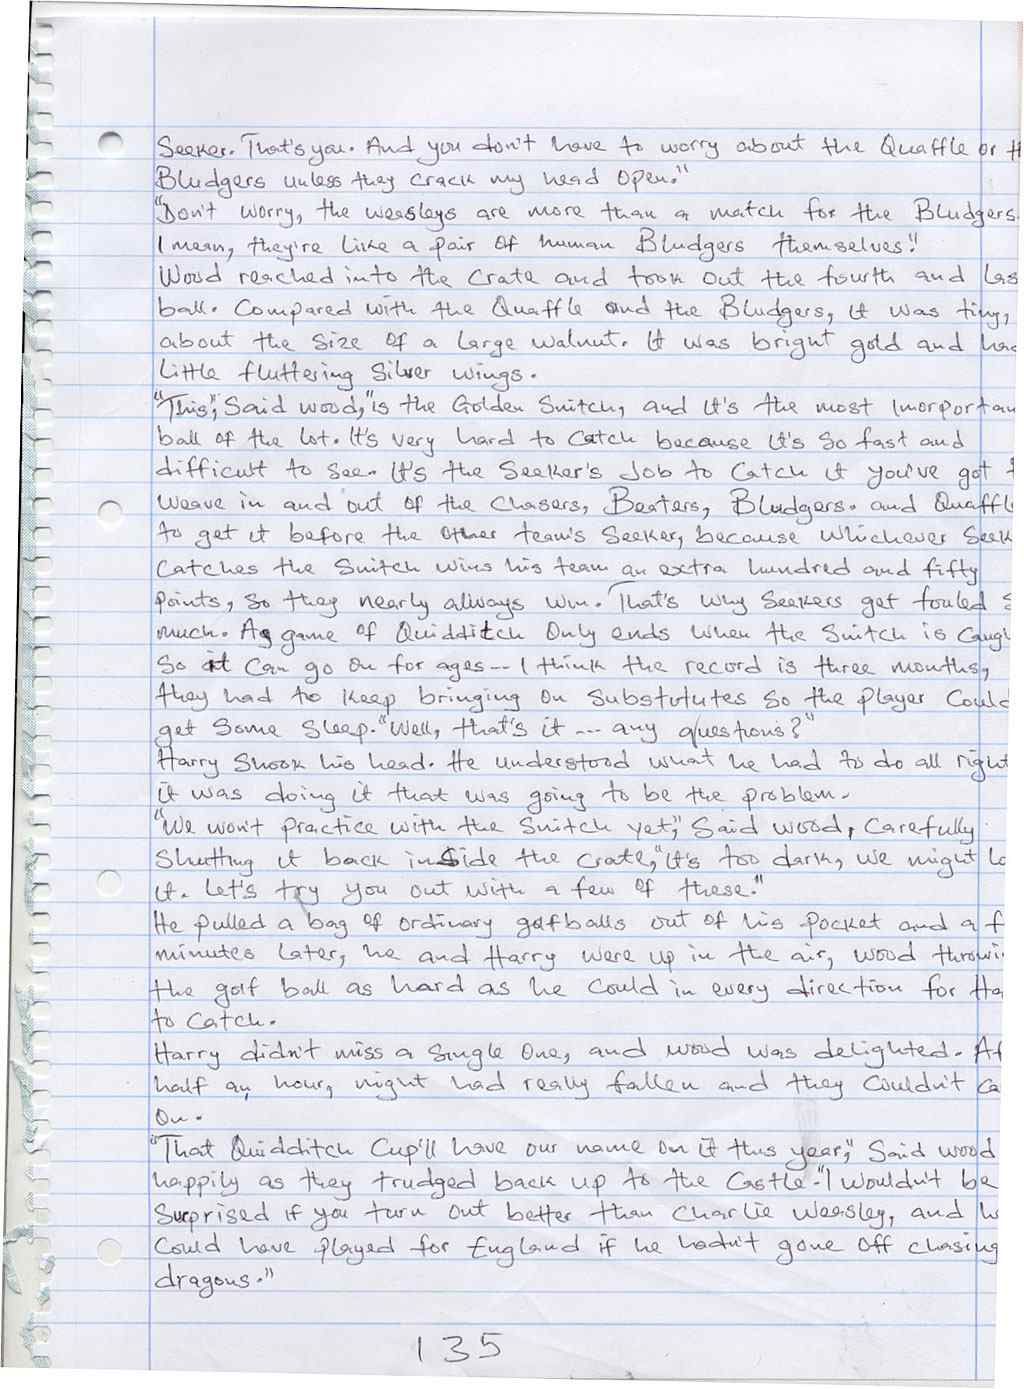 Seeker. That's you. And you don't have to worry about the Quaffle or th
Bludgers unless they crack my head open."
"Don't worry, the weasleys are more than a match for the Bludgers
I mean, they're like a pair of human Bludgers themselves."
Wood reached into the crate and took out the fourth and Las
ball. Compared with the Quaffle and the Bludgers, it was tiny,
about the size of a large walnut. It was bright gold and had
little fluttering silver wings.
"This", said wood, "is the Golden Snitch, and it's the most Imorportan
ball of the lot. It's very hard to catch because it's so fast and
difficult to see. It's the seeker's Job to catch it you've got t
weave in and out of the chasers, Beaters, Bludgers. and Quaffle
to get it before the other team's seeker, because whichever seek
catches the snitch wins his team an extra hundred and fifty
points, so they nearly always win. That's why seekers get fouled s
much. A game of Quidditch only ends when the snitch is caugh
so it can go on for ages -- I think the record is three months,
they had to keep bringing on substutутes so the player could
get some sleep. "Well, that's it --- any questions?"
Harry shook his head. He understood what he had to do all right
it was doing it that was going to be the problem.
"We won't practice with the snitch yet," said wood, carefully
shutting it back inside the crate, "it's too dark, we might lo
it. Let's try you out with a few of these."
He pulled a bag of ordinary golfballs out of his pocket and a f
minutes later, he and Harry were up in the air, wood throwi
the golf ball as hard as he could in every direction for Ha
to catch.
Harry didn't miss a single one, and wood was delighted. Af
half an hour, night had really fallen and they couldn't ca
on.
"That Quidditch Cup'll have our name on it this year," said wood
happily as they trudged back up to the castle. "I wouldn't be
surprised if you turn out better than charlie weasley, and h
could have played for England if he hadn't gone off chasing
dragons."
135